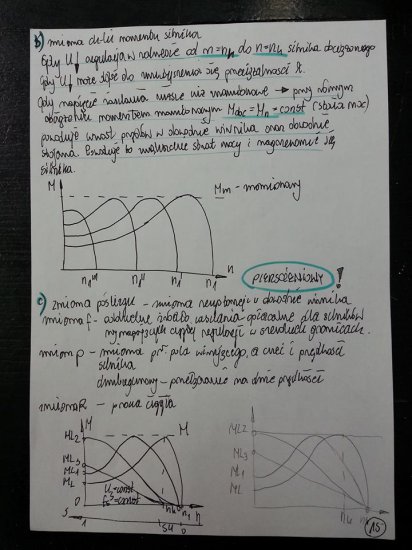 b) zmiana char momentu silnika
Gdy U↓ regulacja w zakresie od n=nn do n=nk silnika obciążonego
Gdy U↓ może dojść do zmniejszenia się przeciążalności
Gdy napięcie zasilania niższe niż znamionowe → przy pełnym
obciążeniu momentem znamionowym Mobc = Mn = const (stała moc)
powoduje wzrost prądów w obwodzie wirnika oraz obwodzie
stojana. Powoduje to zwiększenie strat mocy i nagrzewanie się
silnika.
M
Mm - znamionowy
n1''' n1'' n1' n1 n
PIERŚCIENIOWY !
c) zmiana poślizgu - zmiana rezystancji w obwodzie wirnika
zmiana f - oddzielne źródło zasilania opłacalne dla silników
wymagających ciągłej regulacji w szerokich granicach.
zmiana p - zmiana pr. pola wirującego, a z nią i prędkości
silnika
dwubiegunowy - przełączanie na dwie prędkości
zmiana R - praca ciągła
M
ML2 M ML2
ML3 ML3
ML1 ML1
ML ML
U1=const
f=const
0 nk n1 n
s 1 sk 0
nk n1
15